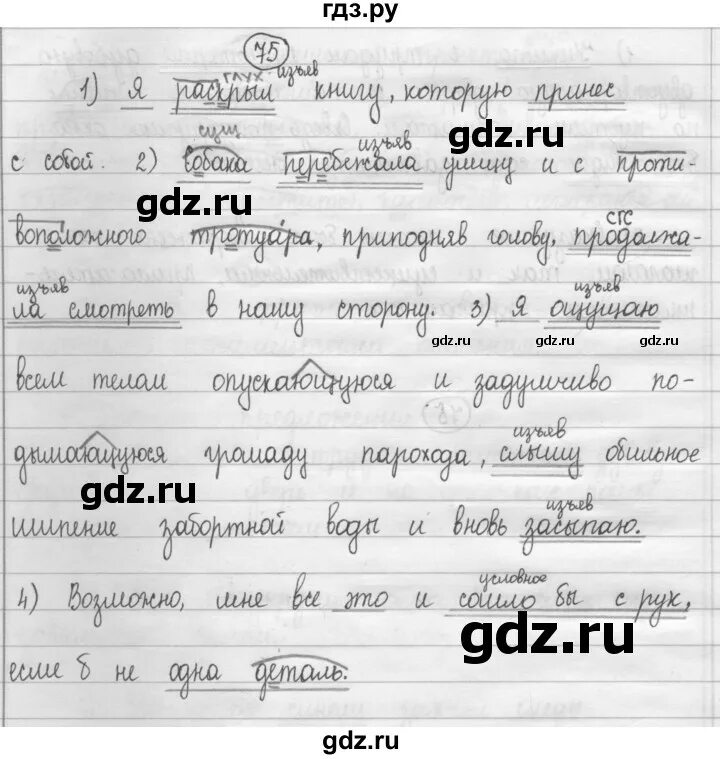 гдз.ру
75
глух изъяв
1) Я раскрыл книгу, которую принес
сущ изъяв gdz.ru
с собой. 2) Собака перебежала улицу и с проти-
gdz.ru gdz.ru gdz.ru
СГС
воположного тротуара, приподняв голову, продолжа-
gdz.ru
изъяв изъяв
ла смотреть в нашу сторону. 3) Я ощущаю
gdz.ru gdz.ru gdz.ru
всем телом опускающуюся и задумчиво по-
изъяв
дымающуюся громаду парохода, слышу обильное
gdz.ru gdz.ru
изъяв
шипение забортной воды и вновь засыпаю.
условное
4) Возможно, мне все это и сошло бы с рук,
gdz.ru
если б не одна деталь.
gdz.ru
gdz.ru